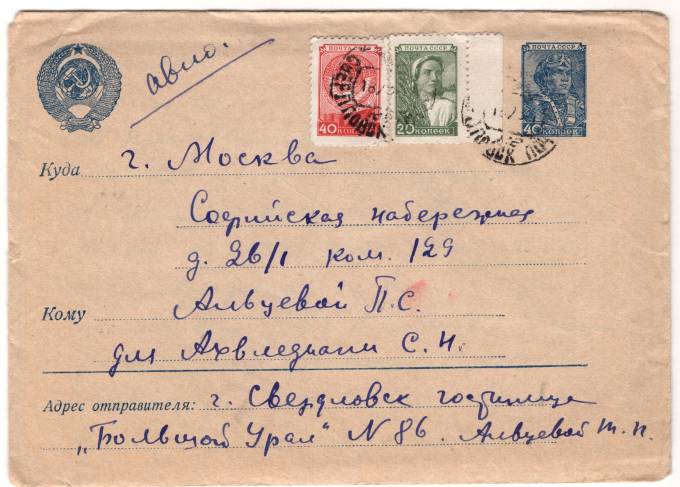 авио.
ПОЧТА СССР
40 КОПЕЕК
ПОЧТА СССР
20 КОПЕЕК
ПОЧТА СССР
40 КОПЕЕК
Куда г. Москва
Софийская набережная
д. 26/1 ком. 129
Кому Альцевой П.С.
для Ахвледиани С.Н.
Адрес отправителя: г. Свердловск гостиница
„Большой Урал" N 86. Альцевой Т.П.